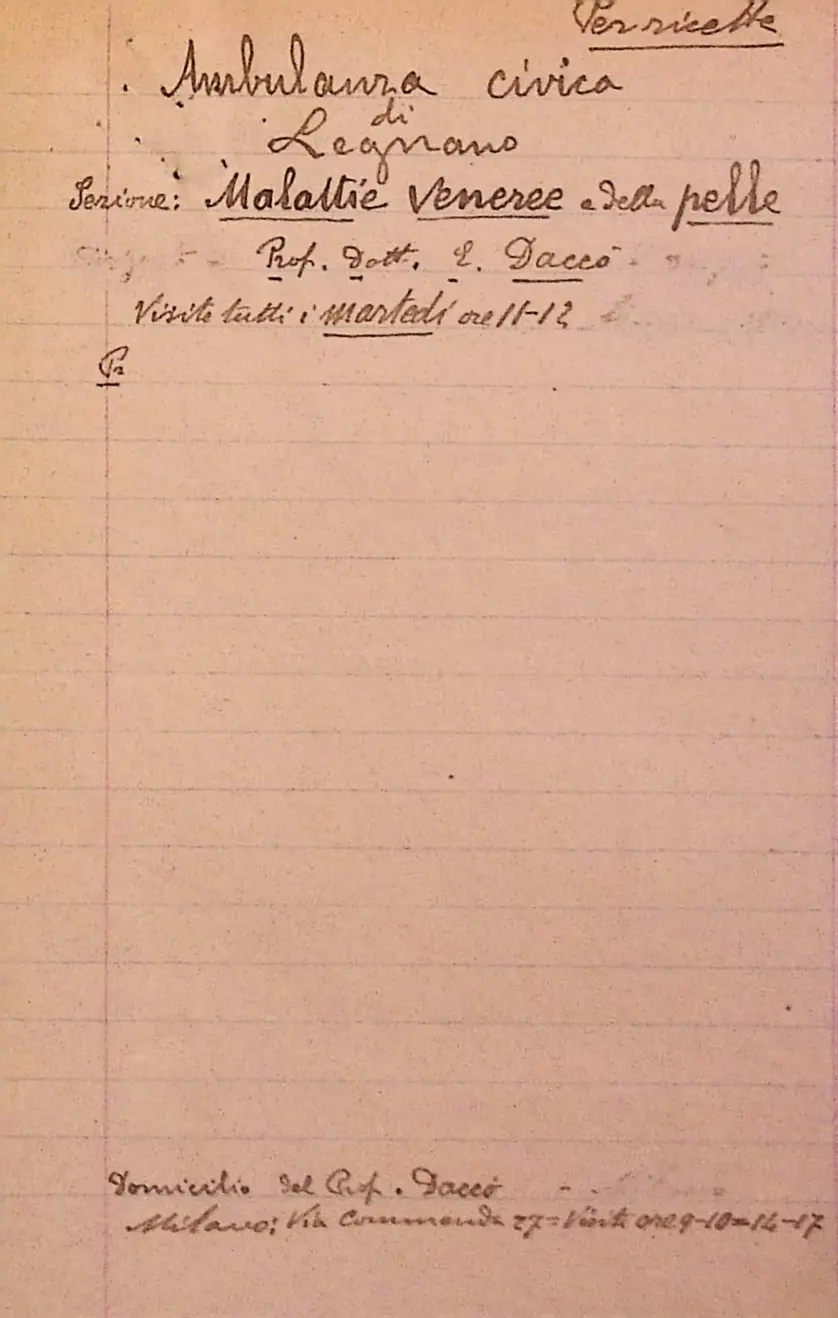 Per ricette
Ambulanza civica
di
Legnano
Sezione: Malattie Veneree e della pelle
Prof. Dott. E. Daccò
Visite tutti i martedí ore 11-12
Pr
Domicilio del Prof. Daccò
Milano; Via Commenda 27 = Visite ore 9-10 = 14-17